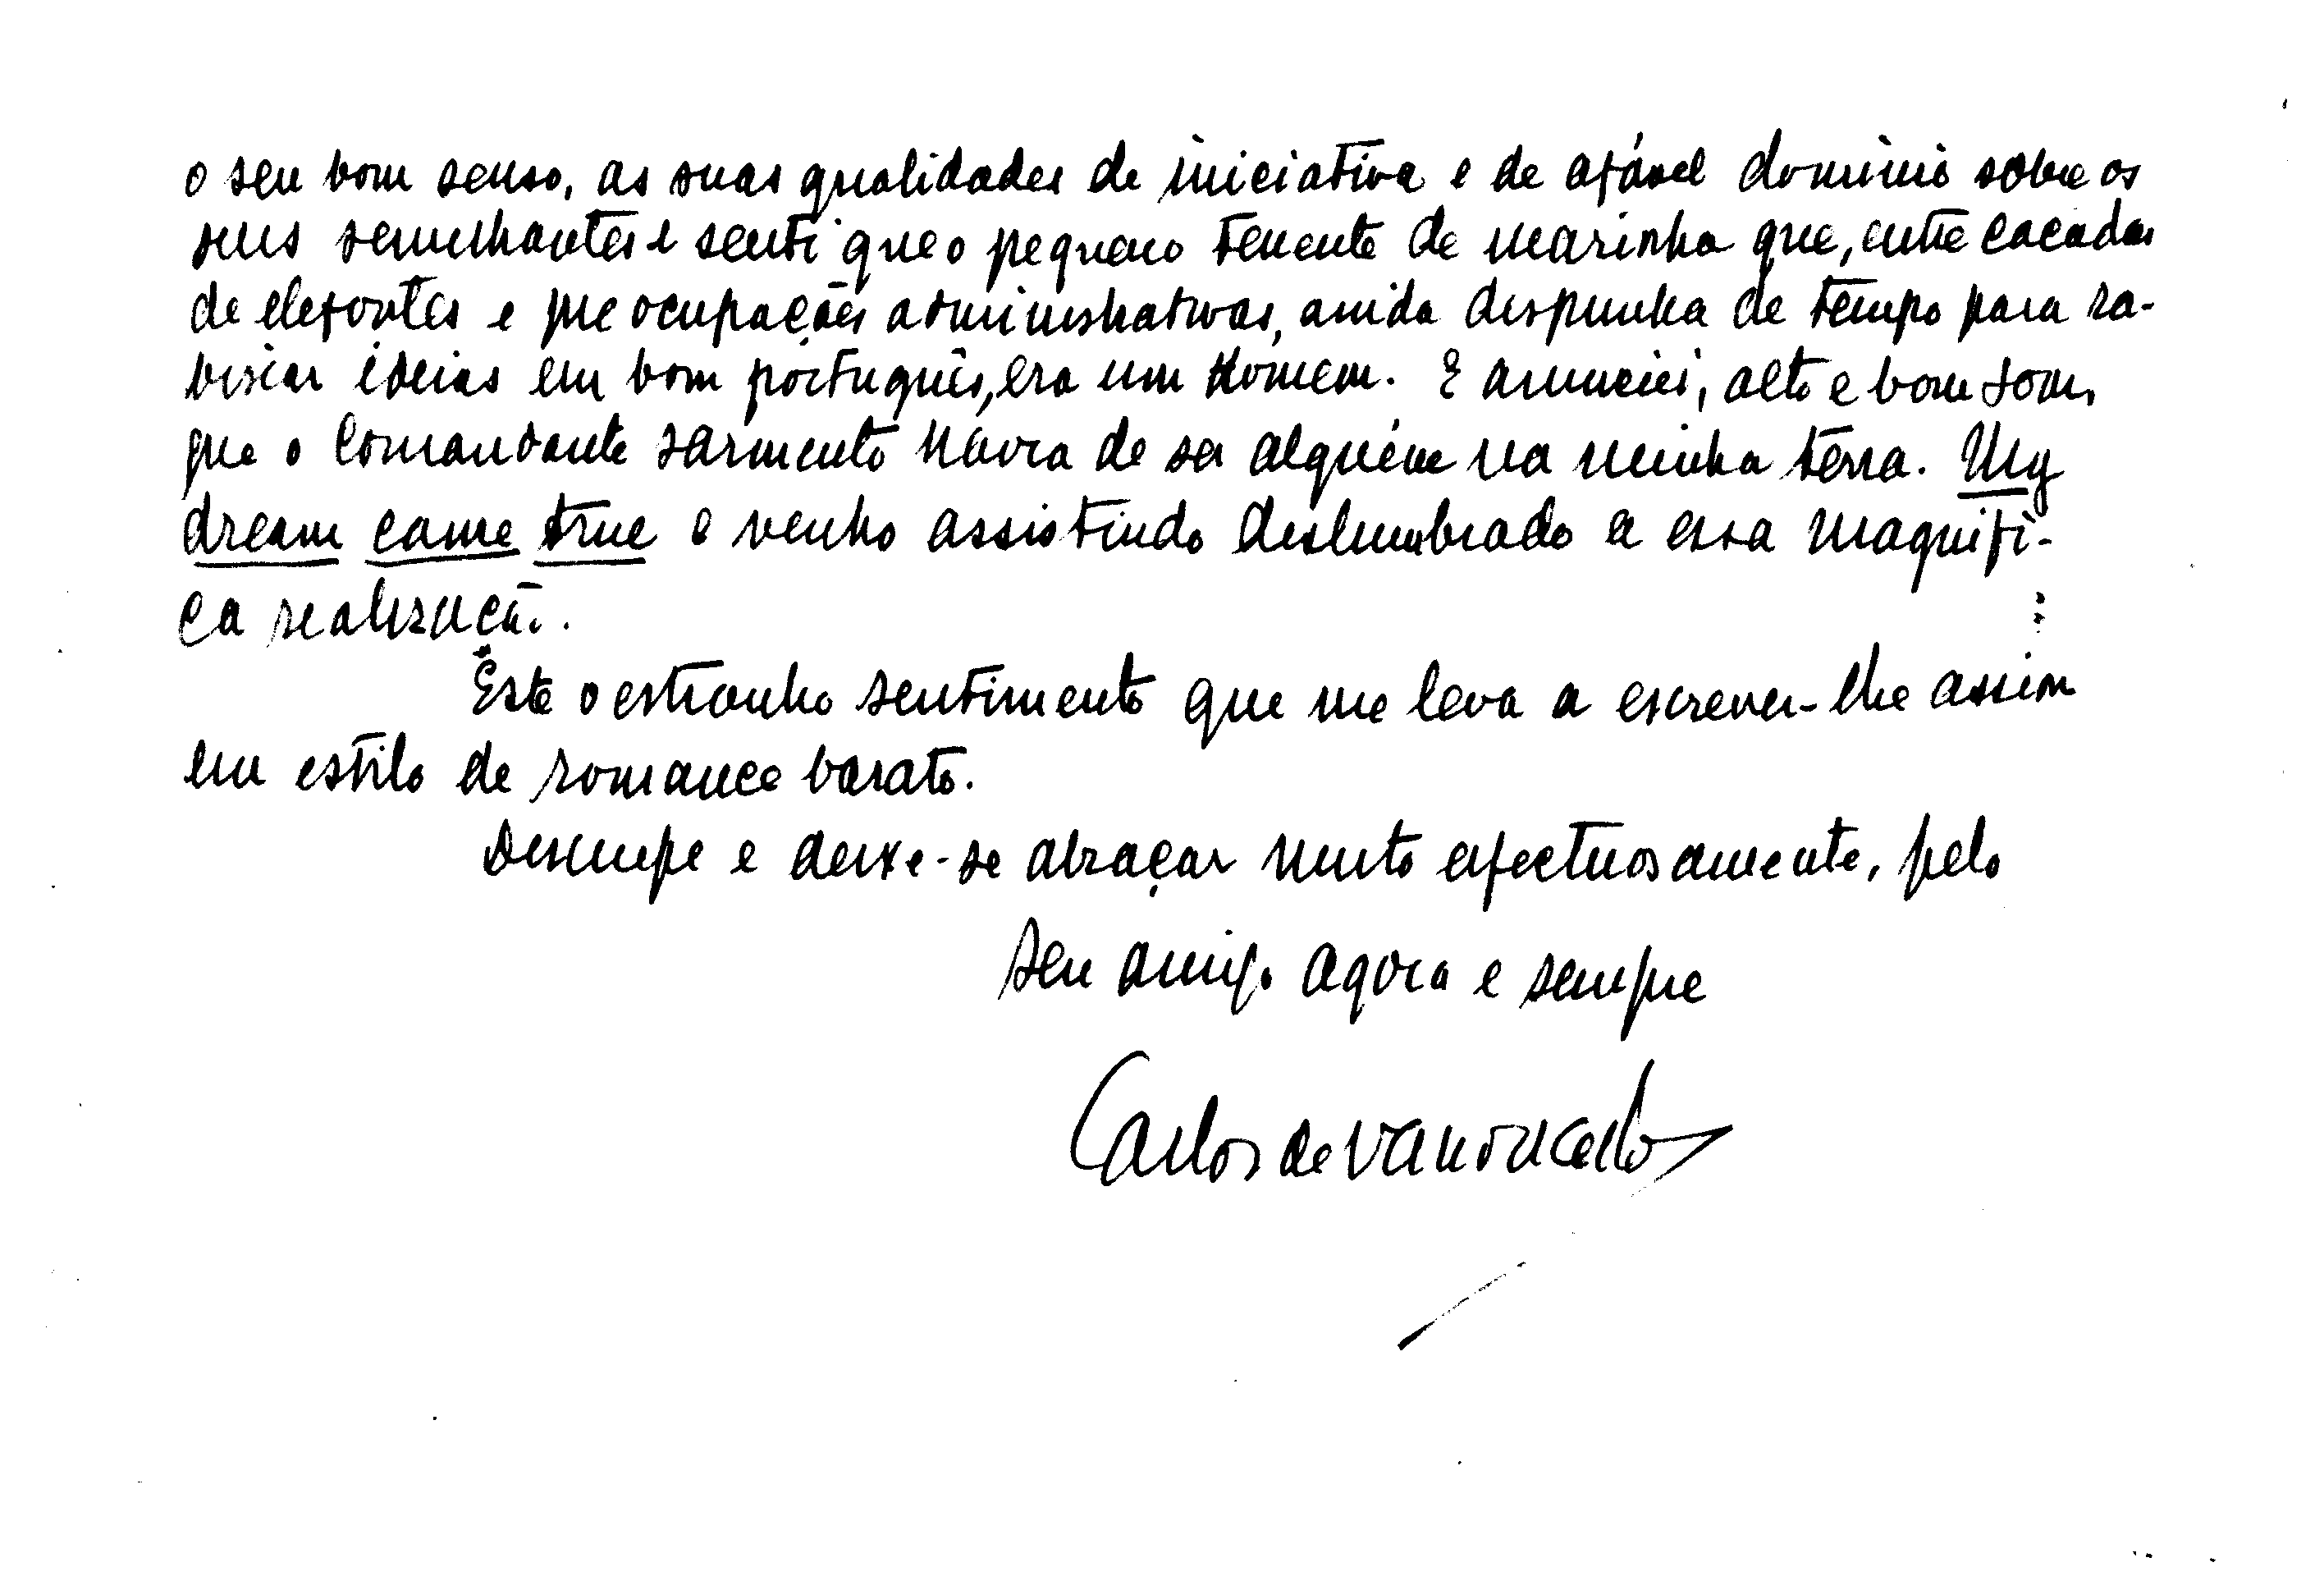 o seu bom senso, as suas qualidades de iniciativa e de afável dominio sobre os
seus semelhantes e senti que o pequeno tenente de marinha que, entre caçadas
de elefantes e preocupações administrativas, ainda dispunha de tempo para ra-
biscar ideias em bom português, era um Homem. E anunciei, alto e bom som,
que o Comandante Sarmento havia de ser alguém na minha terra. My
dream came true e venho assistindo deslumbrado a essa magnifi-
ca realização.
Este o estranho sentimento que me leva a escrever-lhe assim
em estilo de romance barato.
Desculpe e deixe-se abraçar muito afectuosamente, pelo
seu amigo agora e sempre
Carlos de